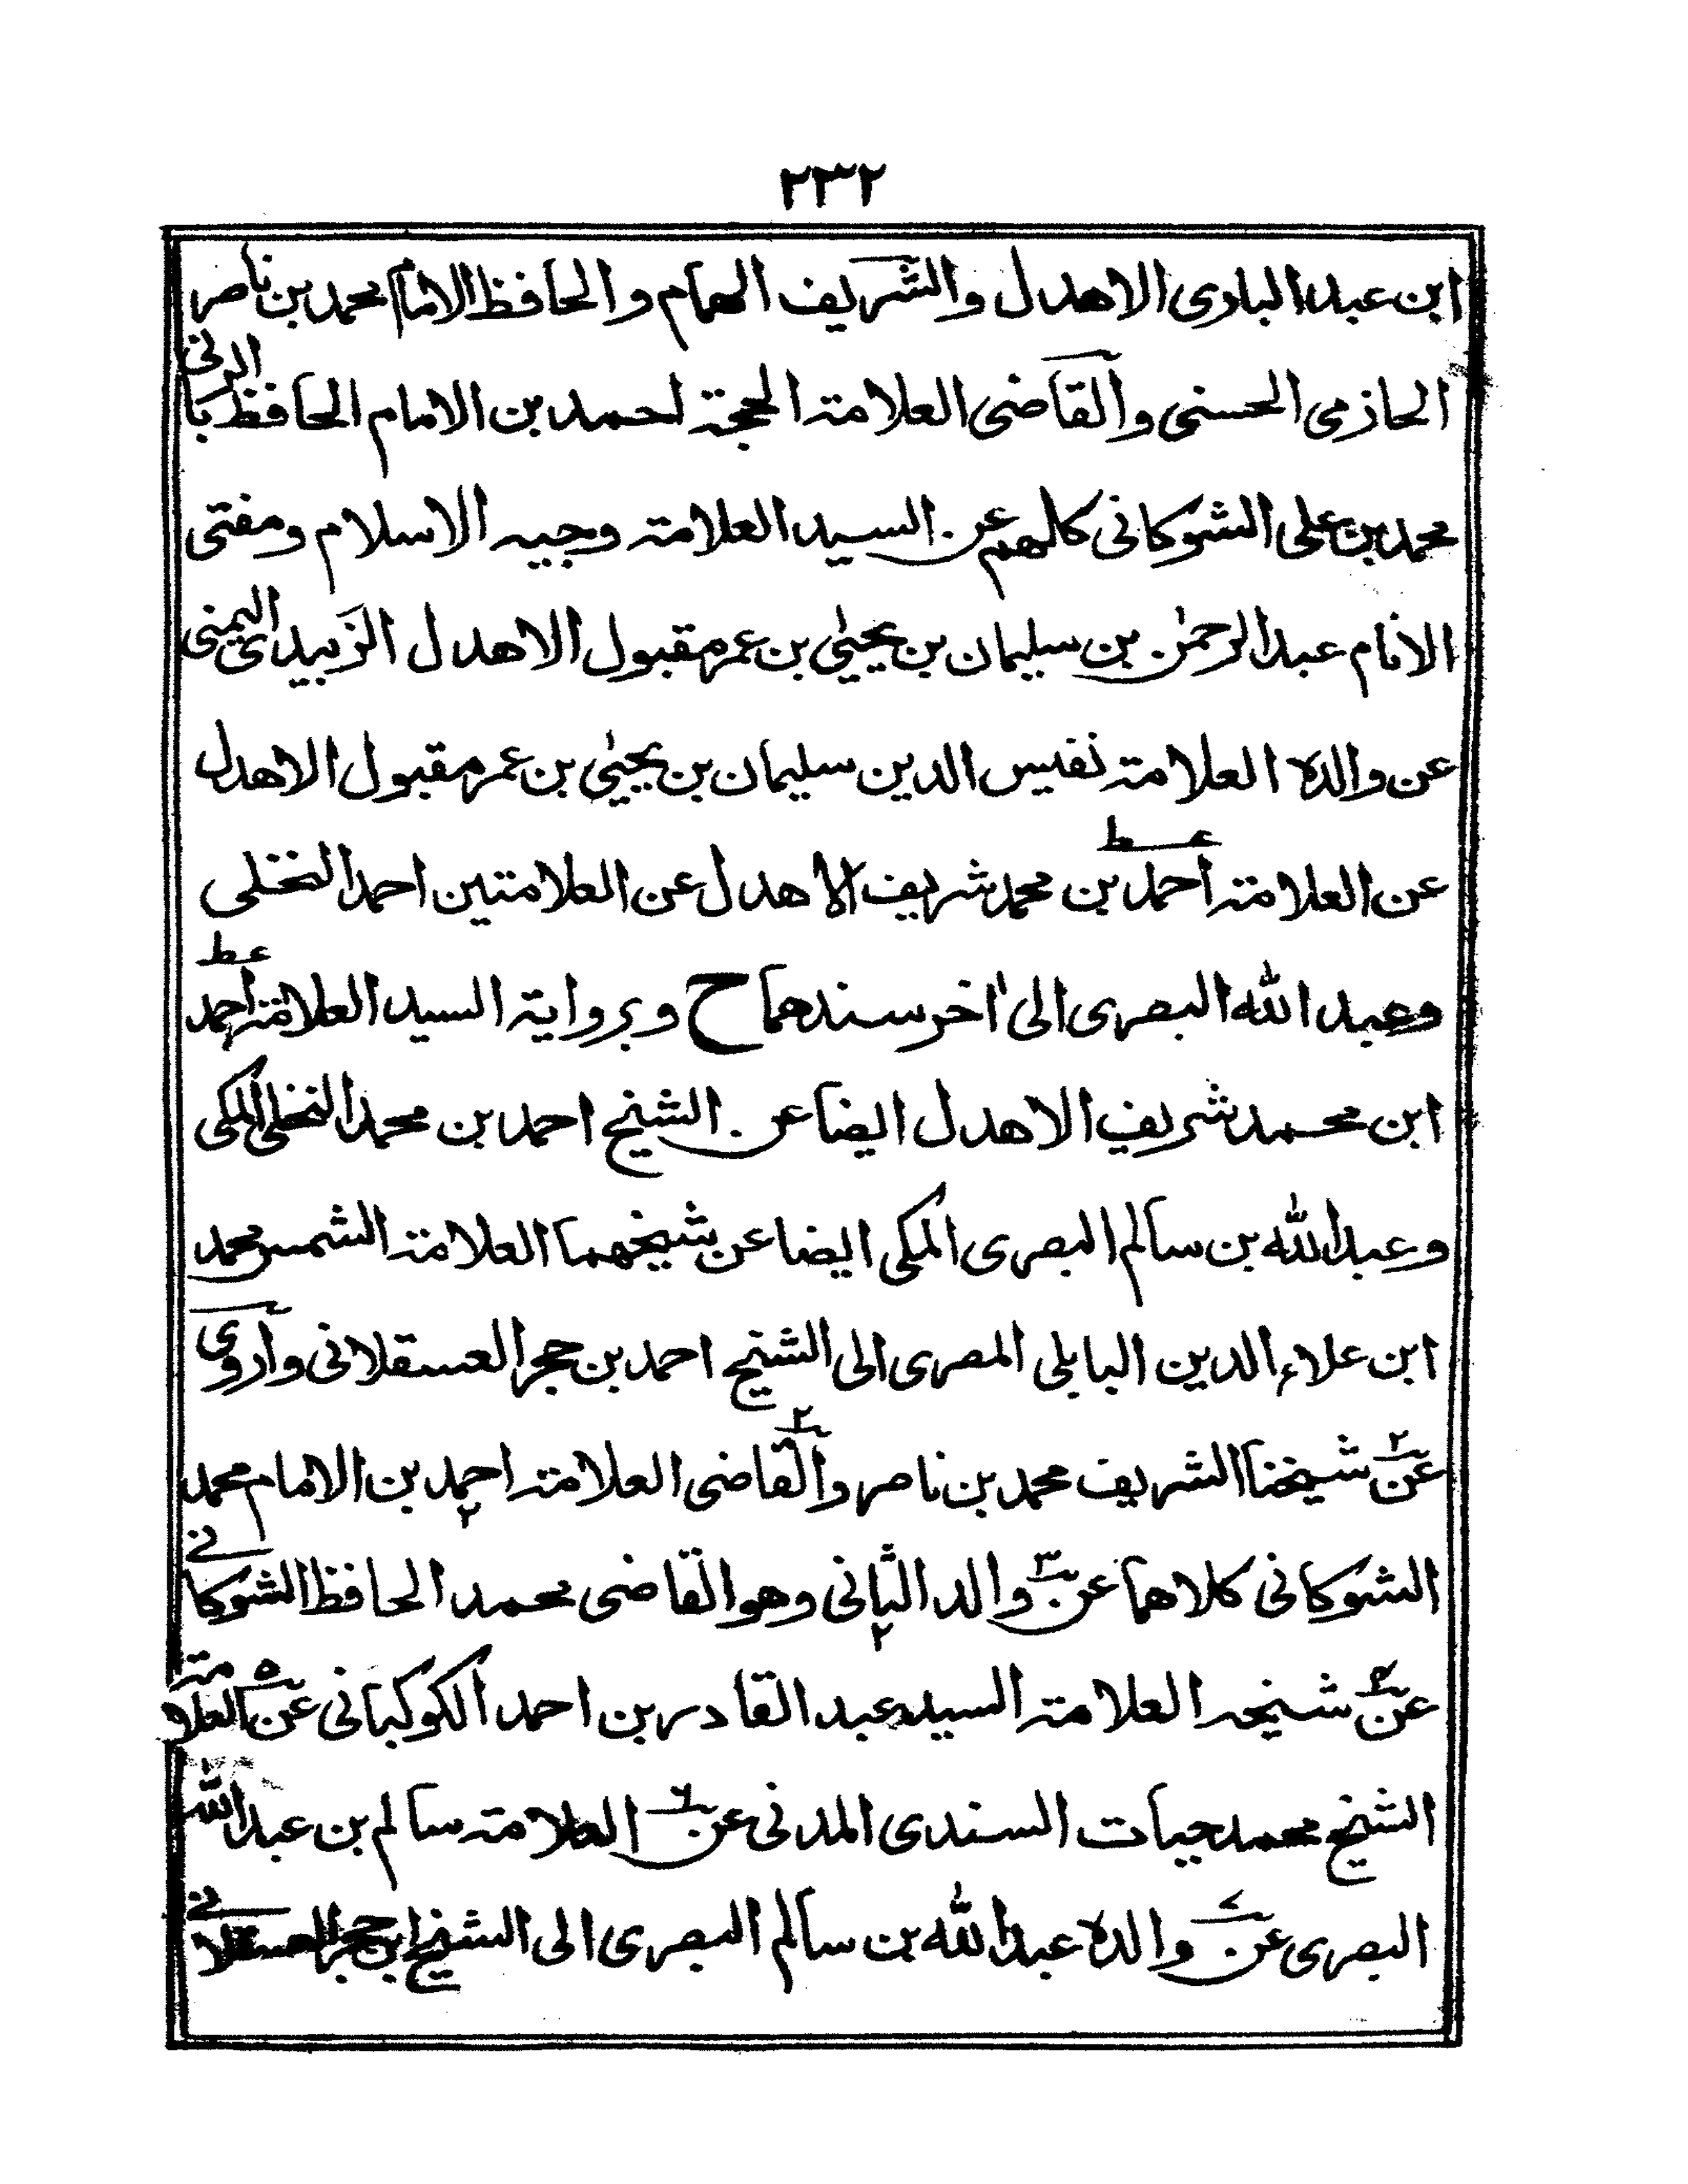 ٢٣٢
ابن عبد البارى الاهدل والشريف الهمام والحافظ الامام محمد بن ناصر
الحازمى الحسنى والقاضى العلامة الحجة احمد بن الامام الحافظ الربانى
محمد بن على الشوكانى كلهم عن السيد العلامة وجيه الاسلام ومفتى
الانام عبد الرحمٰن بن سليمان بن يحيىٰ بن عمر مقبول الاهدل الزبيدى اليمنى
عن والده العلامة نفيس الدين سليمان بن يحيىٰ بن عمر مقبول الاهدل
عن العلامة احمد بن محمد شريف الاهدل عن العلامتين احمد النخلى
وعبد الله البصرى الى اخر سندهما ح وبرواية السيد العلامة احمد
ابن محمد شريف الاهدل ايضا عن الشيخ احمد بن محمد النخلى المكى
وعبد الله بن سالم البصرى المكى ايضا عن شيخهما العلامة الشمس محمد
ابن علاء الدين البابلى المصرى الى الشيخ احمد بن حجر العسقلانى وأروى
عن٢ شيخنا الشريف محمد بن ناصر والقاضى٢ العلامة احمد٢ بن الامام محمد
الشوكانى كلاهما عن٣ والد الثانى٢ وهو القاضى محمد الحافظ الشوكانے
عن٤ شيخه العلامة السيد عبد القادر بن احمد الكوكبانى عن٥ العلامة
الشيخ محمد حيات السندى المدنى عن٦ العلامة سالم بن عبد الله
البصرى عن٧ والده عبد الله بن سالم البصرى الى الشيخ ابن حجر العسقلانے